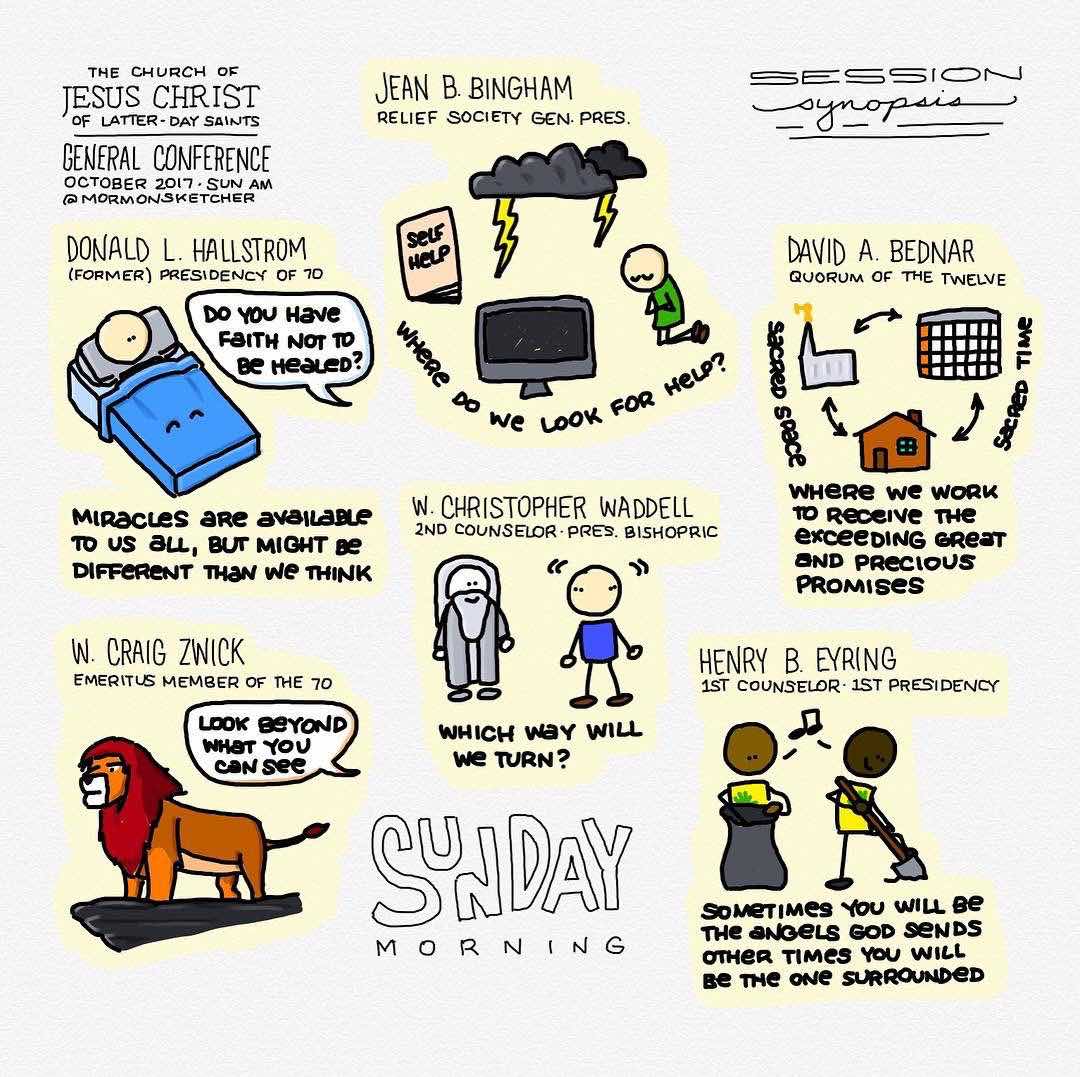 THE CHURCH OF
JESUS CHRIST
OF LATTER-DAY SAINTS
GENERAL CONFERENCE
OCTOBER 2017 · SUN AM
@MORMONSKETCHER
SESSION
synopsis
JEAN B. BINGHAM
RELIEF SOCIETY GEN. PRES.
SELF
HELP
WHERE DO WE LOOK FOR HELP?
DONALD L. HALLSTROM
(FORMER) PRESIDENCY OF 70
DO YOU HAVE
FAITH NOT TO
BE HEALED?
MIRACLES ARE AVAILABLE
TO US ALL, BUT MIGHT BE
DIFFERENT THAN WE THINK
DAVID A. BEDNAR
QUORUM OF THE TWELVE
SACRED SPACE
SACRED TIME
WHERE WE WORK
TO RECEIVE THE
EXCEEDING GREAT
AND PRECIOUS
PROMISES
W. CHRISTOPHER WADDELL
2ND COUNSELOR · PRES. BISHOPRIC
WHICH WAY WILL
WE TURN?
W. CRAIG ZWICK
EMERITUS MEMBER OF THE 70
LOOK BEYOND
WHAT YOU
CAN SEE
HENRY B. EYRING
1ST COUNSELOR · 1ST PRESIDENCY
SOMETIMES YOU WILL BE
THE ANGELS GOD SENDS
OTHER TIMES YOU WILL
BE THE ONE SURROUNDED
SUNDAY
MORNING